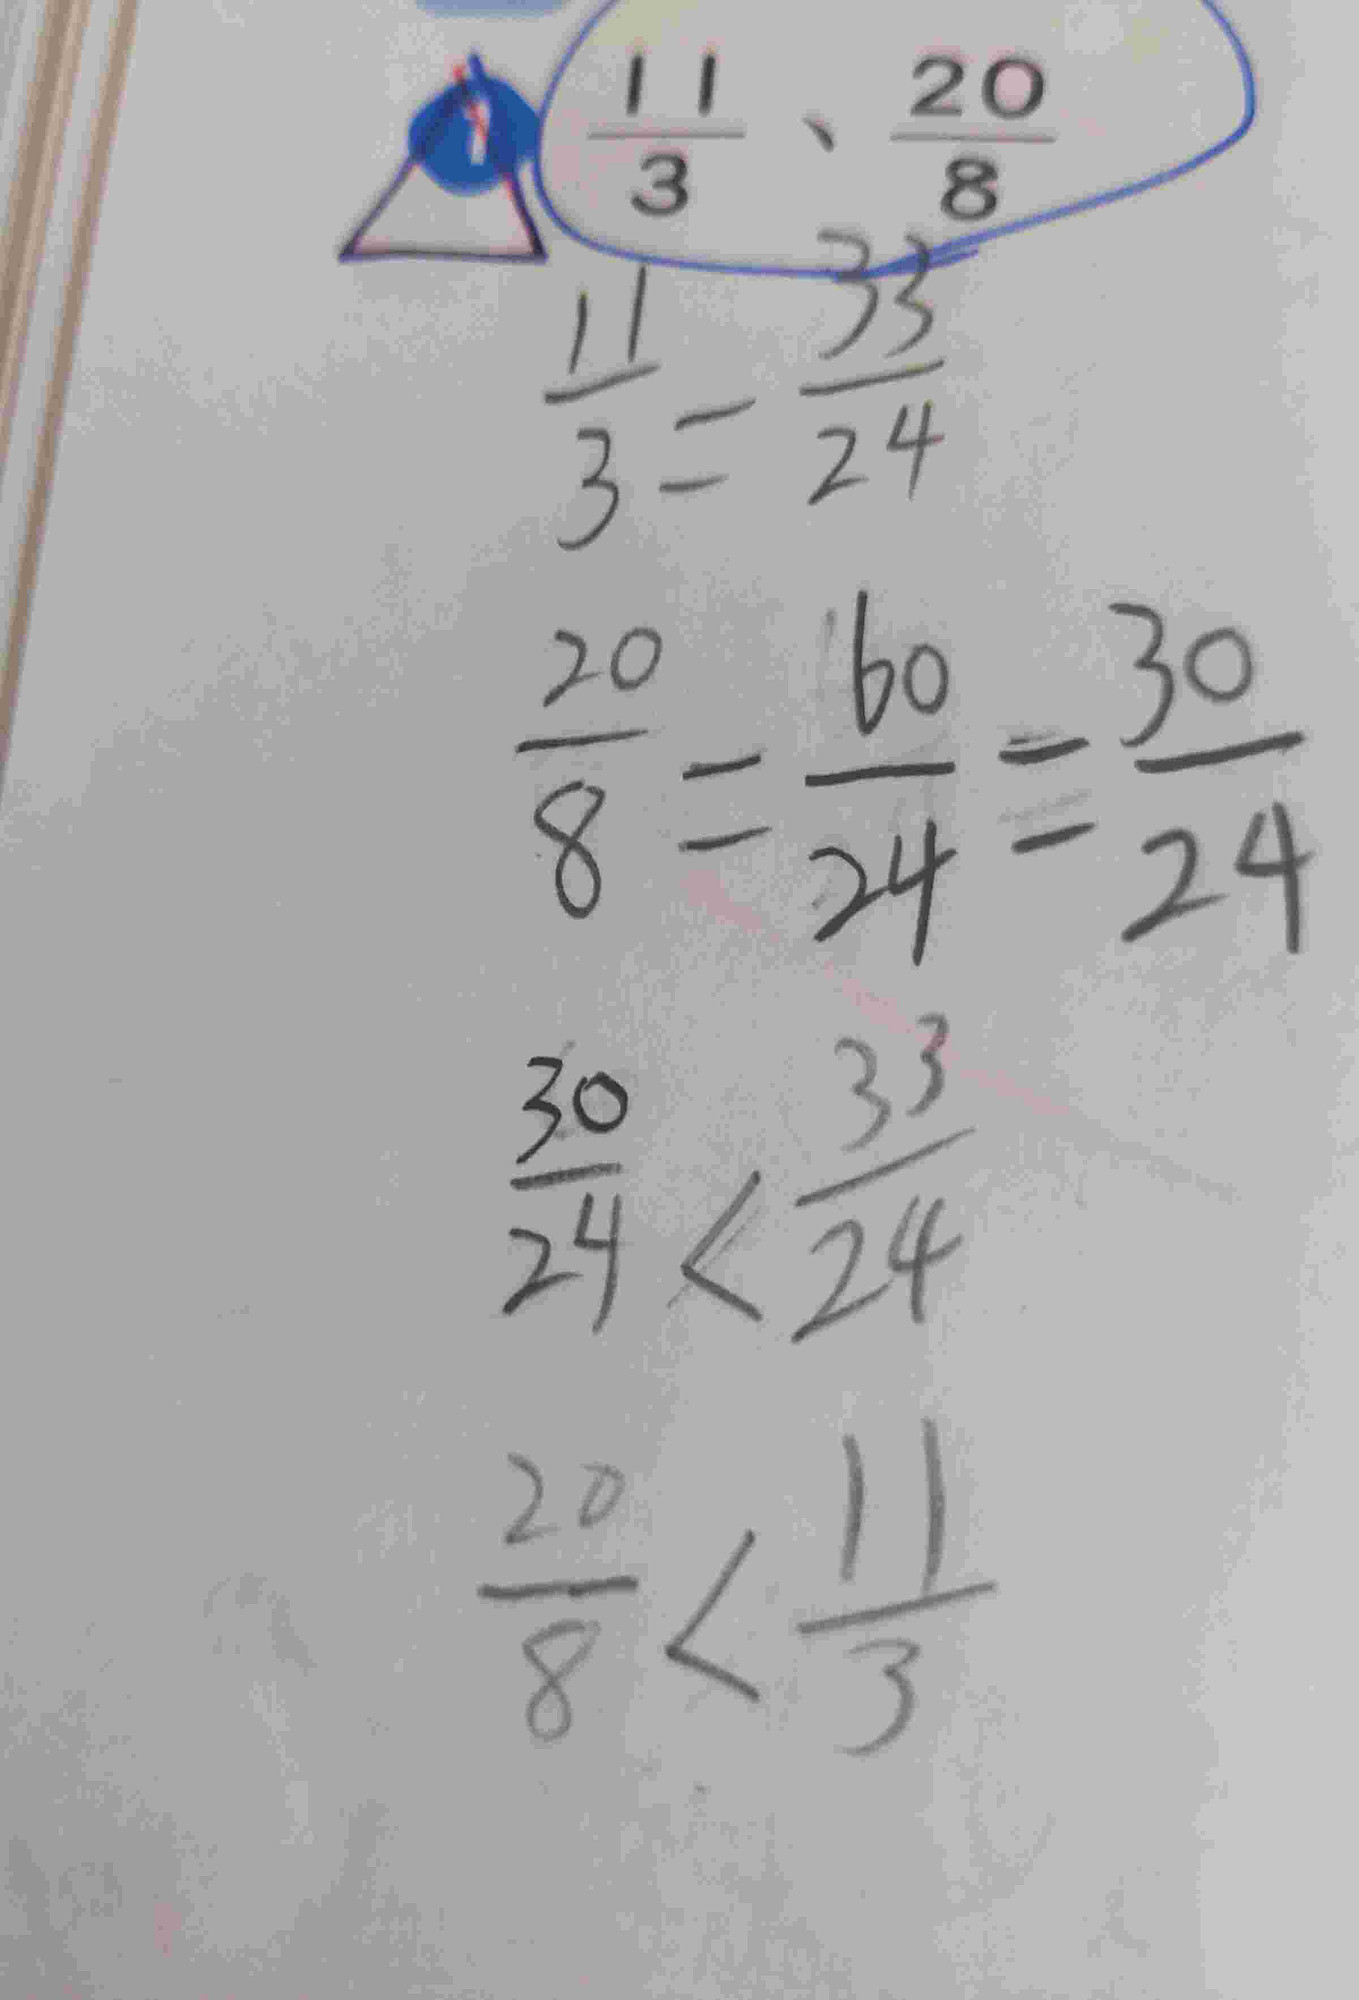 1 11/3、20/8
11/3 = 33/24
20/8 = 60/24 = 30/24
30/24 < 33/24
20/8 < 11/3